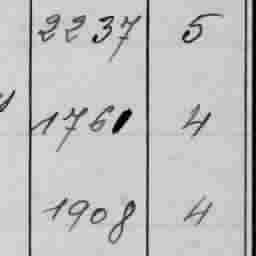 2237 5
1760 4
1908 4